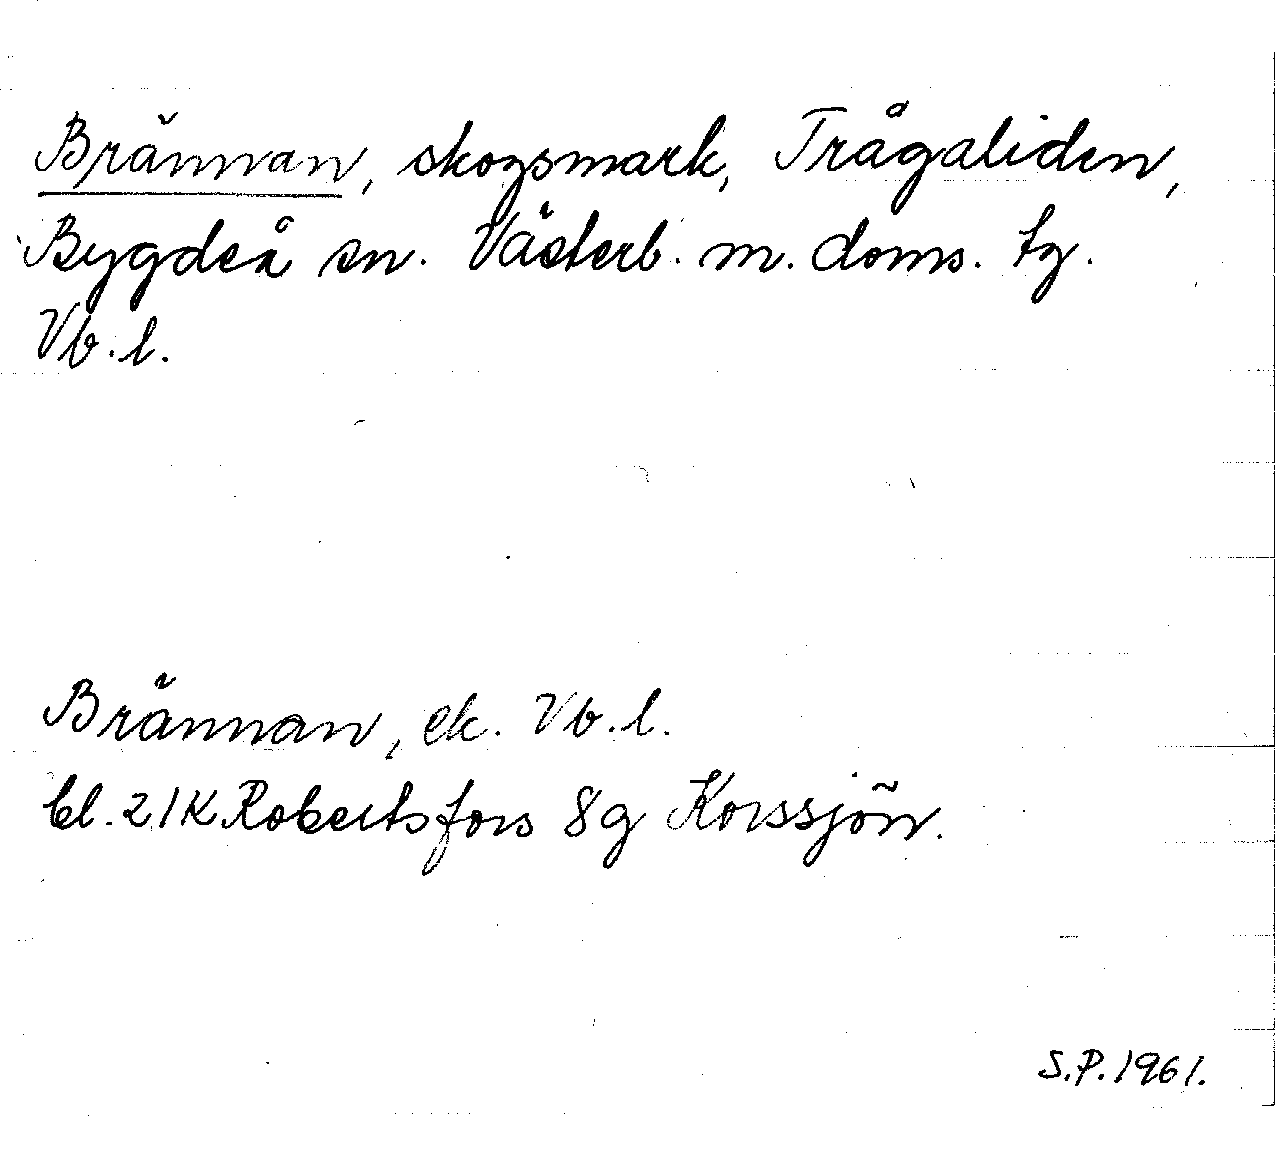 Brännan, skogsmark, Trågaliden,
Bygdeå sn. Västerb. m. doms. tg.
Vb. l.
Brännan, ek. Vb. l.
bl. 21K Robertsfors 8g Korssjön.
S.P. 1961.